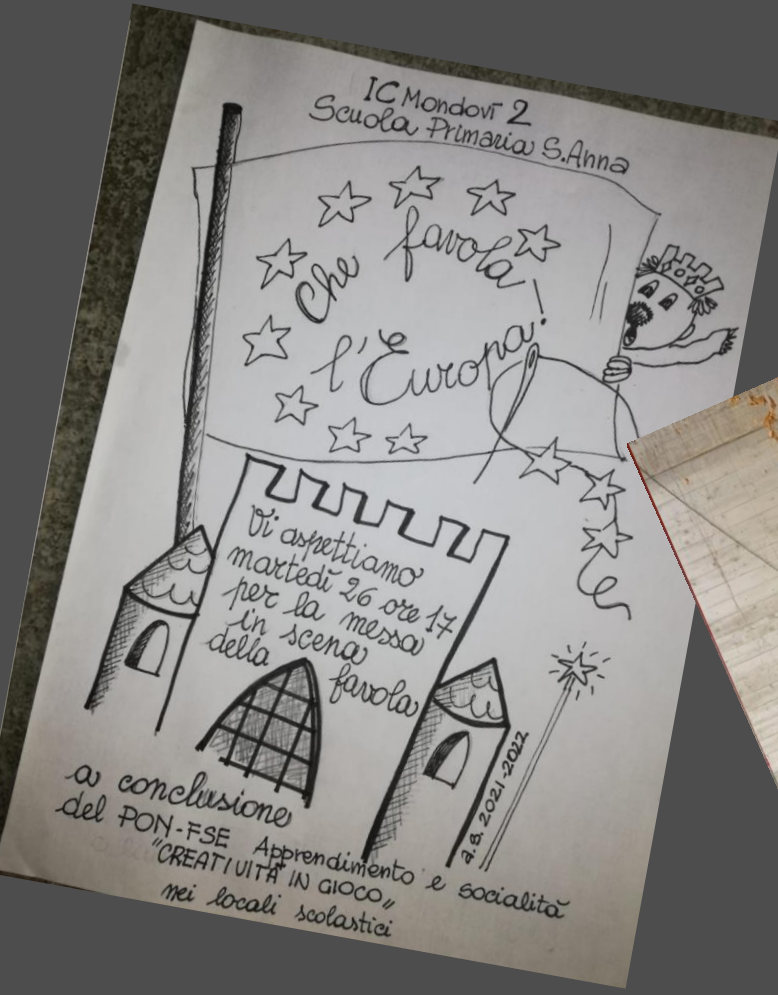 IC Mondovì 2
Scuola Primaria S.Anna
Che favola
l'Europa!
Vi aspettiamo
martedì 26 ore 17
per la messa
in scena
della favola
a.s. 2021-2022
a conclusione
del PON-FSE Apprendimento e socialità
"CREATIVITÀ IN GIOCO"
nei locali scolastici